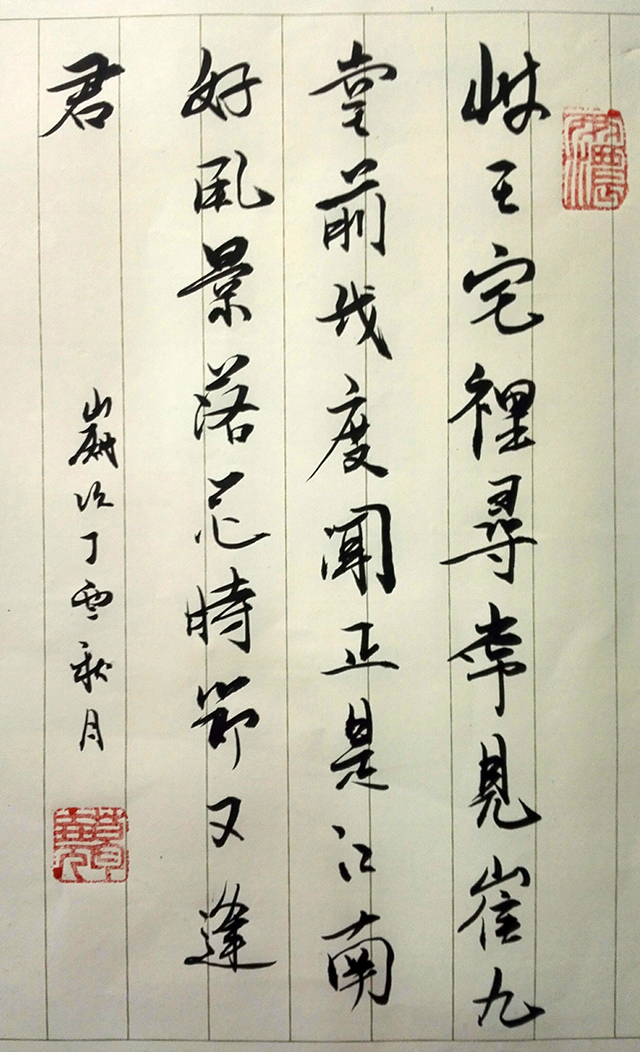 岐王宅裡尋常見崔九
堂前幾度聞正是江南
好風景落花時節又逢
君
歲次丁酉秋月